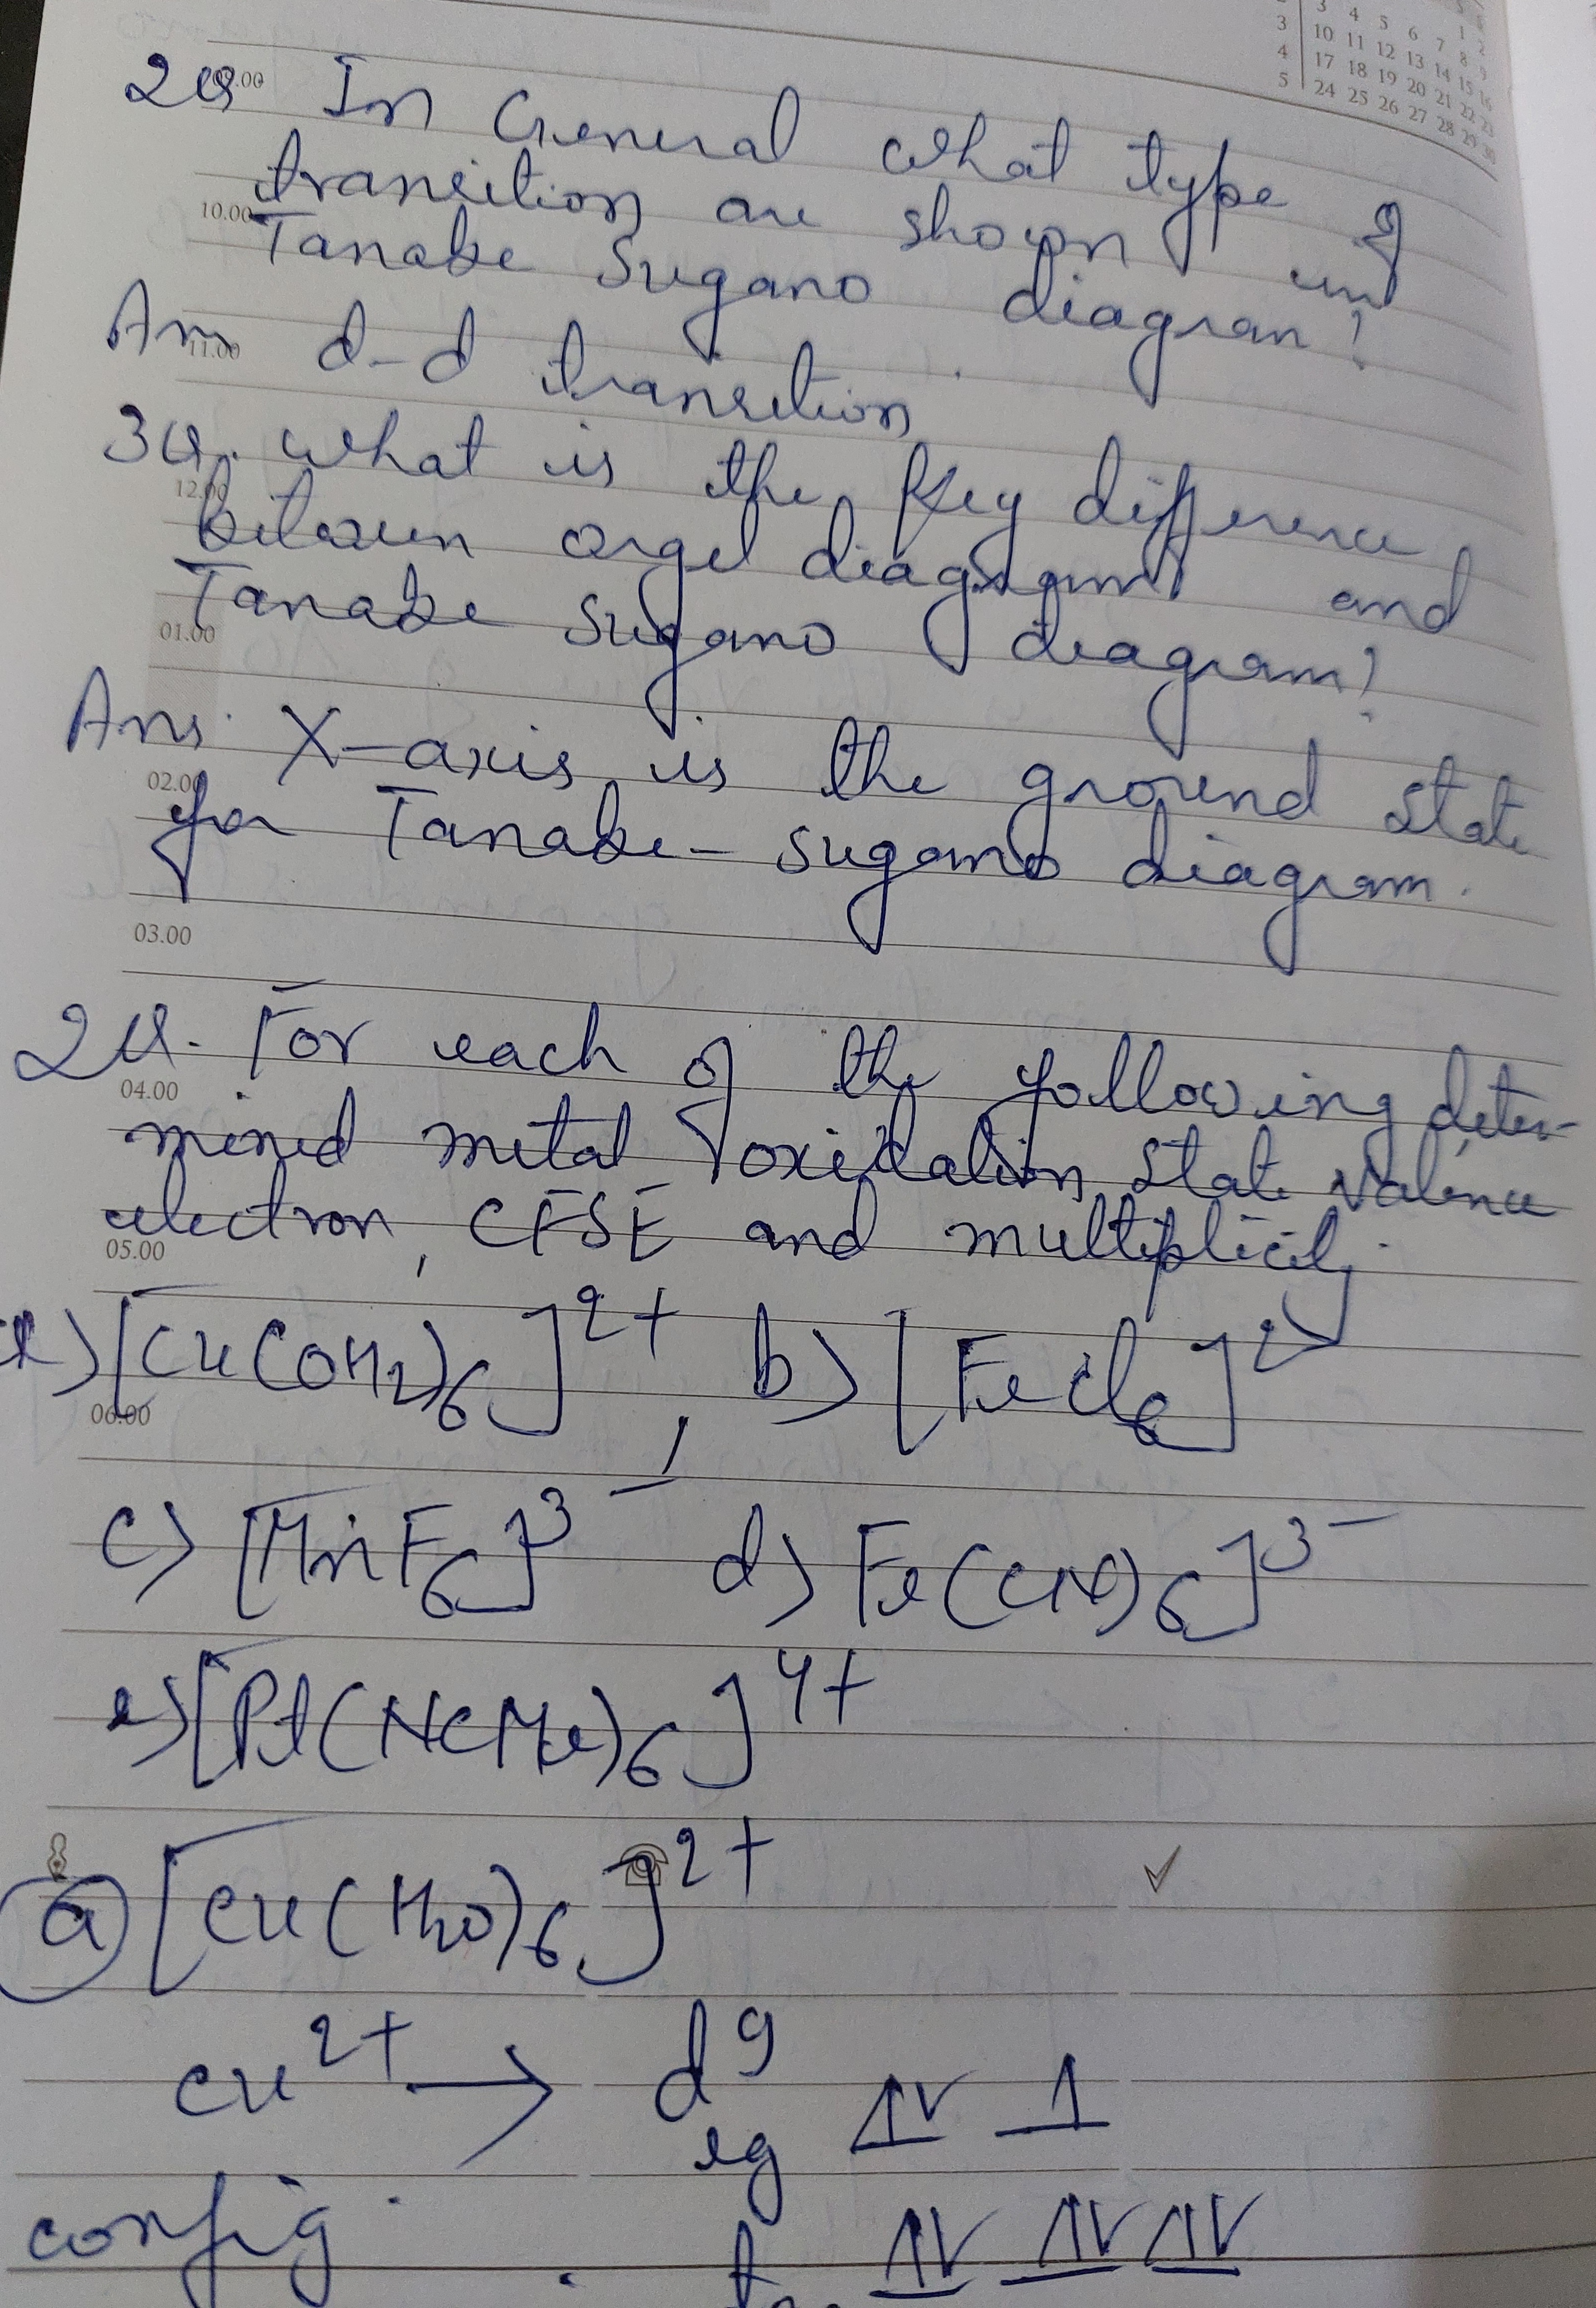 3 4 5 6 7 8 9
3 10 11 12 13 14 15 16
4 17 18 19 20 21 22 23
5 24 25 26 27 28 29 30
2Q In General what type of
transition are shown in
10.00
Tanabe Sugano diagram?
Ans d-d transition
11.00
3Q. what is the key difference
12.00
between orgel diagram and
Tanabe Sugano diagram?
01.00
Ans. X-axis is the ground state
02.00
for Tanabe-sugano diagram.
03.00
2Q. For each of the following deter-
04.00
mined metal oxidation state valence
electron, CFSE and multiplicity.
05.00
[Cu(OH2)6]2+, b) [FeCl6]2-
06.00
c) [MnF6]3- d) Fe(CN)6]3-
e) [Pt(NCMe)6]4+
a) [Cu(H2O)6]2+
Cu2+ → d9
eg ⥮ ↿
config. ⥮ ⥮ ⥮